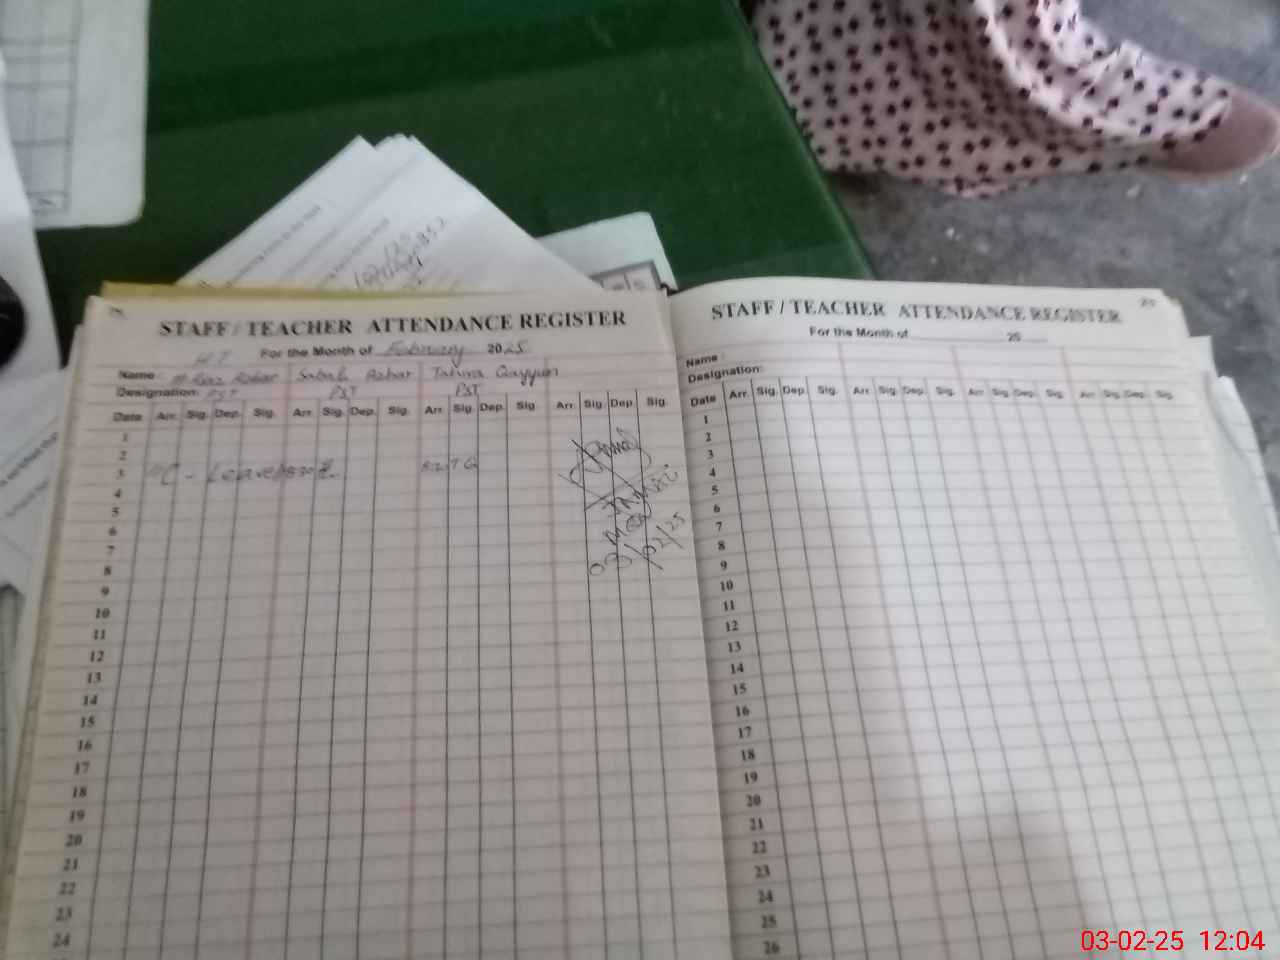 STAFF / TEACHER ATTENDANCE REGISTER
H.T For the Month of February 2025
Name Azhar Sabah Azhar Tahira Qayyum
Designation: PST PST PST
Date Arr. Sig. Dep. Sig. Arr. Sig. Dep. Sig. Arr. Sig. Dep. Sig. Arr. Sig. Dep. Sig.
1
2
3 C - Leave 8:30 8:30 TQ
4
5
6
7
8
9
10
11
12
13
14
15
16
17
18
19
20
21
22
23
24
03/02/25
STAFF / TEACHER ATTENDANCE REGISTER
For the Month of 25
Name :
Designation:
Date Arr. Sig. Dep. Sig. Arr. Sig. Dep. Sig. Arr. Sig. Dep. Sig. Arr. Sig. Dep. Sig.
1
2
3
4
5
6
7
8
9
10
11
12
13
14
15
16
17
18
19
20
21
22
23
24
25
26
03-02-25 12:04